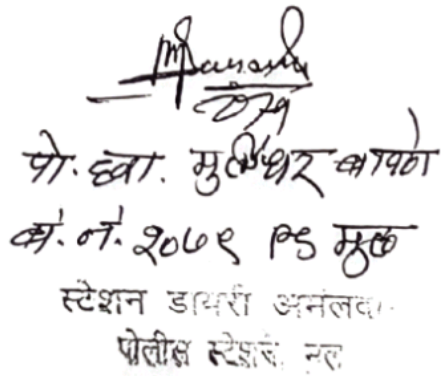 2079
पो. हवा. मुरलीधर बापणे
ब. नं. २०७९ PS मुल
स्टेशन डायरी अमंलदार
पोलीस स्टेशन, मुल